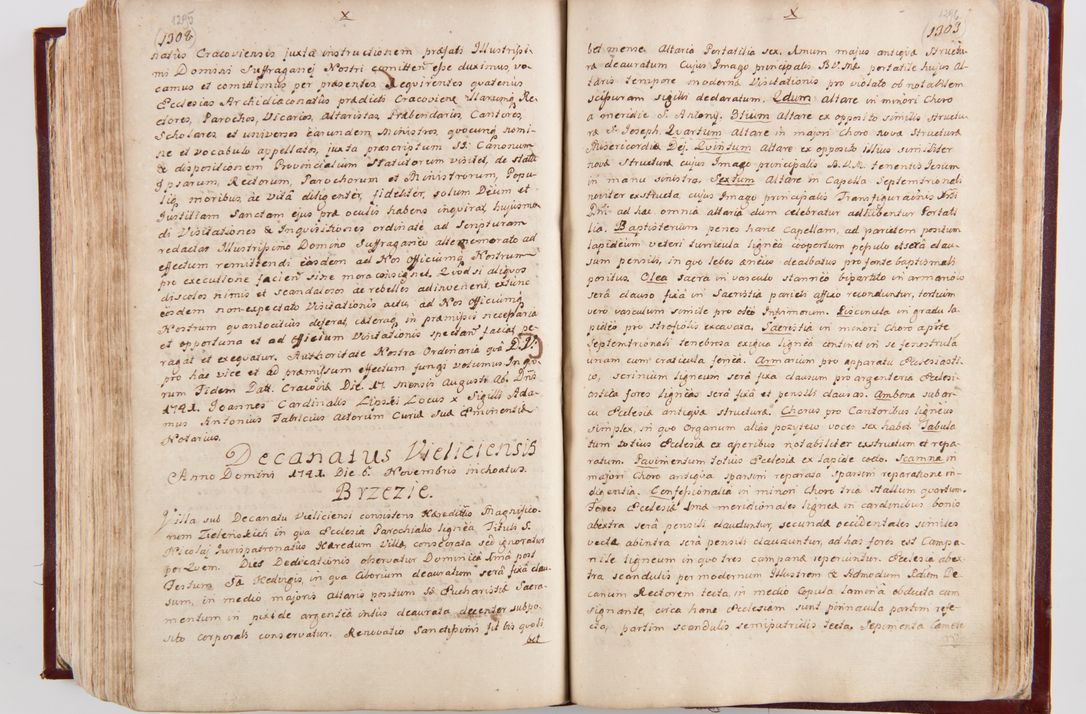 1295
(1308)
x
natus Cracoviensis juxta instructionem præfati Illustrissi-
mi Domini Suffraganei Nostri comitten esse duximus, vo-
camus et comittimus per præsentes. Requirentes quatenus
Ecclesias Archidiaconatus prædicti Cracovien illarumq Re-
ctores, Parochos, Vicarios, Altaristas Præbendarios, Cantores,
Scholares et universos earundem Ministros, quocunq nomi-
ne et vocabulo appellatos, juxta præscriptum SS. Canonum
& dispositionem Provincialium Statutorum visitet, de statu
Ipsarum, Rectorum, Parochorum et Ministrorum, Popu-
liq moribus ac vita diligenter, fideliter, solum Deum et
Justitiam Sanctam ejus præ oculis habens inquirat, hujusmo-
di Visitationes & Inquisitiones ordinate ad Scripturam
redactas Illustrissimo Domino Suffraganeo alte memorato ad
effectum remittendi easdem ad Nos Officiumq Nostrum
pro executione facien sine mora consignet, Quodsi aliquos
discolos nimis et scandalosos ac rebelles adinvenerit, extunc
eosdem non expectato Visitationis actu, ad Nos Officiumq
Nostrum quantocius deferat, cæteraq in præmissis necessaria
et opportuna et ad officium Visitationis spectan faciat, pe-
ragat et exequatur. Authoritate Nostra Ordinaria qua D.V.
pro hac vice et ad præmissum effectum fungi volumus. In quo-
rum Fidem Datt. Cracoviæ Die 17 Mensis Augusti Ao. Dni
1741. Joannes Cardinalis Lipski Locus x Sigilli Ada-
mus Antonius Fabricius Actorum Curiæ Suæ Eminentiæ
Notarius.
Decanatus Vieliciensis
Anno Domini 1741 Die 6 Novembris inchoatus.
Brzezie.
Villa sub Decanatu Vieliciensi consistens Hæreditio Magnifico-
rum Zielenskich in qua Ecclesia Parochialis lignea, Tituli S.
Nicolai Jurispatronatus Hæredum Villæ, consecrata seu ignoratur
per Quem. Dies Dedicationis observatur Dominica Ima post
Festum S. Hedvigis, in qua Ciborium deauratum sera fixa clau-
sum, in medio majoris Altaris positum SS. Eucharistiæ Sacra-
mentum in pixide argentea intus deaurata decenter subpo-
sito corporali conservatur. Renovatio Sanctissimi fit bis quoli-
bet
1296
(1303)
x
bet mense Altaria Portatilia sex. Imum majus antiqua structu-
ra deauratum Cujus Imago principalis B.V.Ma portatile hujus Al-
taris tempore moderna Visitationis pro violato ob notabilem
scissuram sigilli declaratum. 2dum Altare in minori Choro
a meridie S. Antony. 3tium Altare ex opposito similis structu-
ra S. Joseph. Quartum Altare in majori Choro nova structura
Misericordia Dei. Quintum Altare ex opposito illius similiter
nova structura cujus Imago principalis B.V.M. tenentis Jesum
in manu sinistra. Sextum Altare in Capella Septemtrionali
noviter exstructa cujus Imago principalis Transfigurationis Xsti
Dni ad hæc omnia altaria dum celebratur adhibentur Portati-
lia. Baptisterium penes hanc Capellam, ad parietem positum
lapideum veteri turricula lignea coopertum pepulo et sera clau-
sum pensili, in quo lebes æneus dealbatus pro fonte baptismali
positus. Olea sacra in vasculo stanneo bipartito in armario
sera clauso fixa in Sacristia parieti affixo reconduntur, tertium
vero vasculum simile pro oleo Infirmorum. Piscinula in gradu la-
pideo pro stropolis excavata. Sacristia in minori Choro a parte
Septemtrionali tenebrosa exigua lignea continet in se fenestrula
unam cum craticula ferrea. Armarium pro apparatu Ecclesiasti-
co, scrinium ligneum sera fixa clausum pro argenteria Ecclesi-
ostila fores ligneas sera fixa et pensili clausas. Ambona sub ar-
cu Ecclesia antiqua structura. Chorus pro Cantoribus ligneus
simplex, in quo Organum alias pozytew voces sex habet. Tabula-
tum totius Ecclesia ex asperibus notabiliter exstructum et repa-
ratum. Pavimentum totius Ecclesia ex lapide cocto. Scamna in
majori Choro antiqua sparsim reparata sparsim reparatione in-
digentia. Confessionalia in minori Choro tria stallum quartum.
Fores Ecclesiæ Ima meridionales lignea in cardinibus bonis
abextra sera pensili clauduntur, secundæ occidentales similes
vecta abintra sera pensili clauduntur, ad has fores est Campa-
nile ligneum in quo tres campanæ reperiuntur. Ecclesia abex-
tra scandulis per modernum Illustrem & Admodum Rdum De-
canum Rectorem tecta, in medio Copula lamina obducta cum
signante, circa hanc Ecclesiam sunt pinnacula partim reje-
cta, partim scandulis semiputridis tecta. Sepimenta Cæmete-